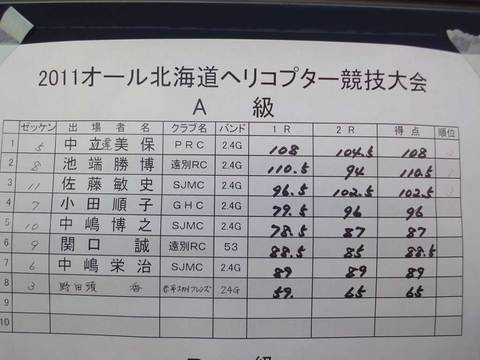 2011オール北海道ヘリコプター競技大会
A 級
ゼッケン 出場者名 クラブ名 バンド 1R 2R 得点 順位
1 5 中立 美保 PRC 2.4G 108 104.5 108
2 8 池端勝博 遠別RC 2.4G 110.5 94 110.5
3 11 佐藤敏史 SJMC 2.4G 96.5 102.5 102.5
4 7 小田順子 GHC 2.4G 79.5 96 96
5 10 中嶋博之 SJMC 2.4G 78.5 87 87
6 9 関口 誠 遠別RC 53 88.5 85 88.5
7 6 中嶋栄治 SJMC 2.4G 89 89 89
8 3 野田頭 香 2.4G 59. 65 65
9
10